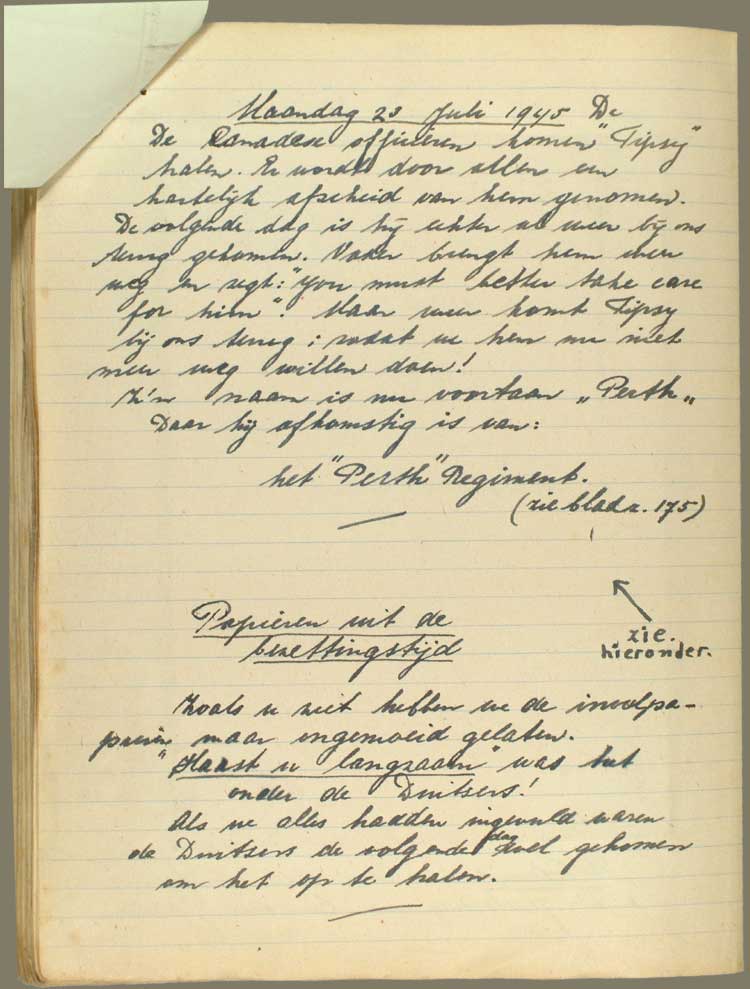 Maandag 23 Juli 1945 De
De Canadese officieren komen "Tipsy"
halen. Er wordt door allen een
hartelijk afscheid van hem genomen.
De volgende dag is hij echter al weer bij ons
terug gekomen. Vader brengt hem weer
weg en zegt: "you must better take care
for him". Maar weer komt Tipsy
bij ons terug; zodat we hem nu niet
meer weg willen doen!
Z'n naam is nu voortaan „Perth„
Daar hij afkomstig is van:
het "Perth" Regiment.
(zie bladz. 175)
zie.
hieronder.
Papieren uit de
bezettingstijd
Zoals u ziet hebben we de invulpa-
pieren maar ongemoeid gelaten.
"Haast u langzaam" was het
onder de Duitsers!
Als we alles hadden ingevuld waren
de Duitsers de volgende dag wel gekomen
om het op te halen.